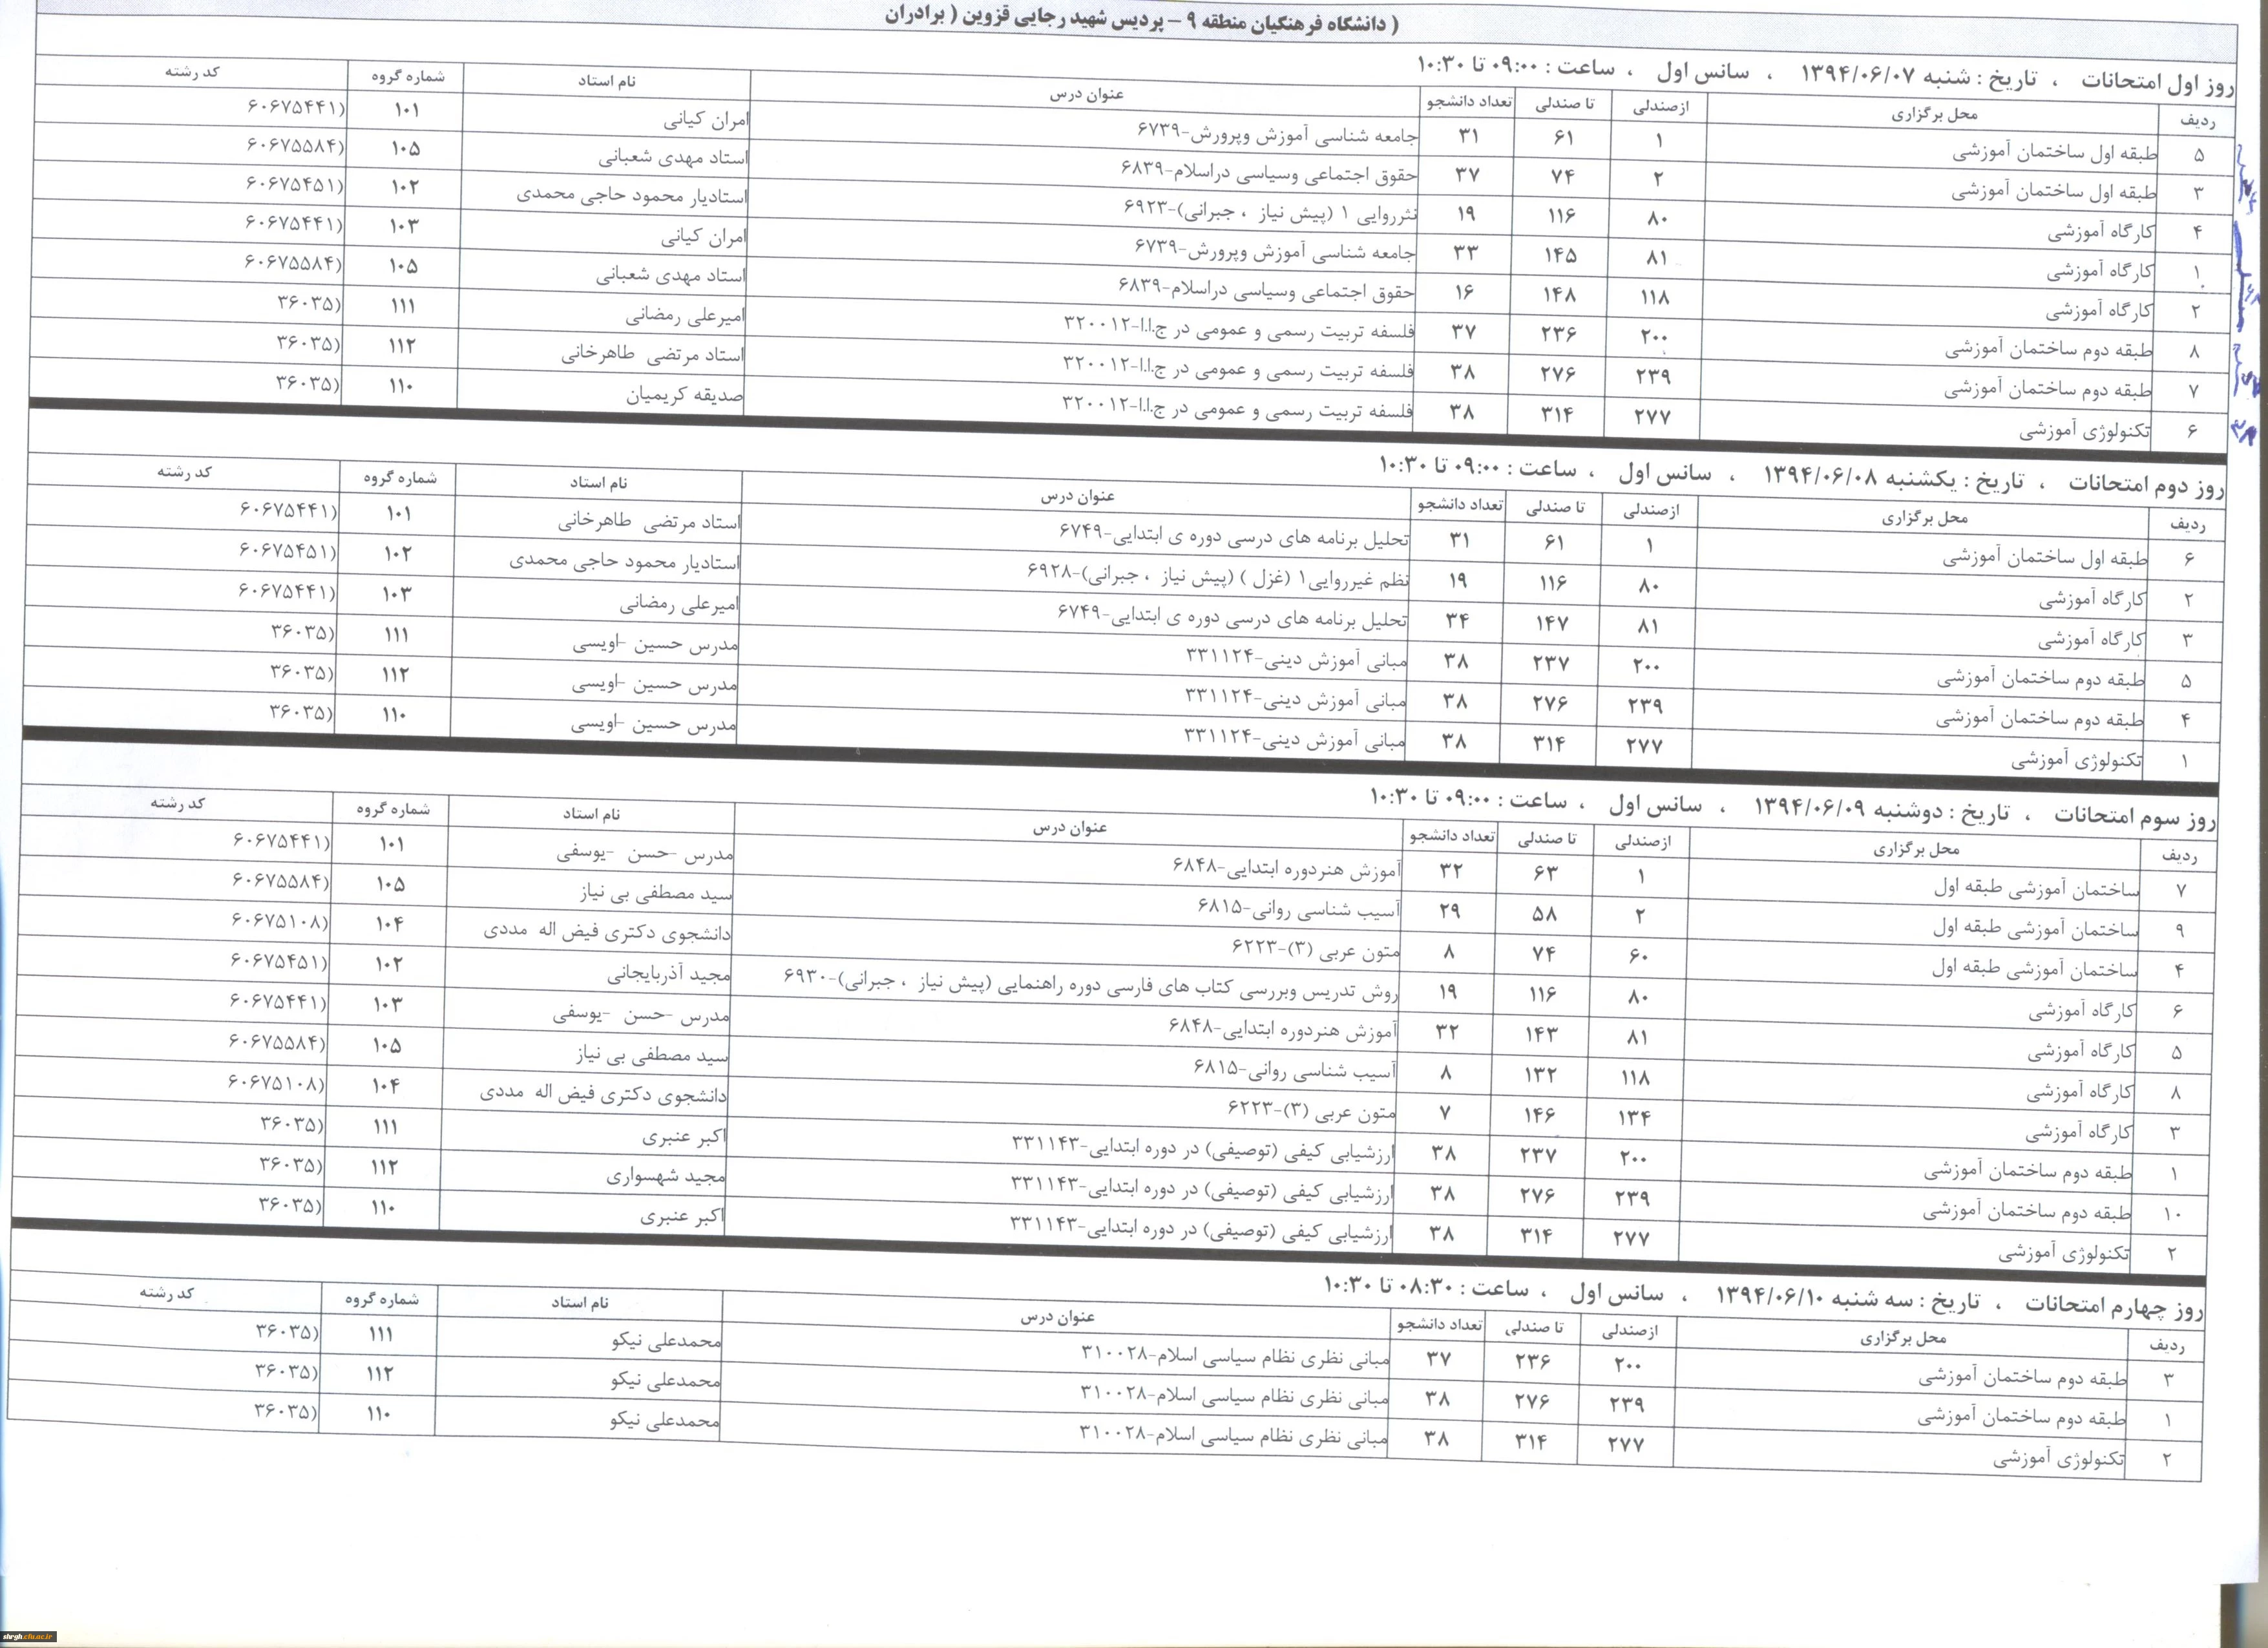 ( دانشگاه فرهنگیان منطقه ۹ - پردیس شهید رجایی قزوین ( برادران
روز اول امتحانات ، تاریخ : شنبه ۱۳۹۴/۰۶/۰۷ ، سانس اول ، ساعت : ۰۹:۰۰ تا ۱۰:۳۰
ردیف محل برگزاری ازصندلی تا صندلی تعداد دانشجو عنوان درس نام استاد شماره گروه کد رشته
۵ طبقه اول ساختمان آموزشی ۱ ۶۱ ۳۱ جامعه شناسی آموزش وپرورش-۶۷۳۹ امران کیانی ۱۰۱ (۶۰۶۷۵۴۴۱
۳ طبقه اول ساختمان آموزشی ۲ ۷۴ ۳۷ حقوق اجتماعی وسیاسی دراسلام-۶۸۳۹ استاد مهدی شعبانی ۱۰۵ (۶۰۶۷۵۵۸۴
۴ کارگاه آموزشی ۸۰ ۱۱۶ ۱۹ نثرروایی ۱ (پیش نیاز ، جبرانی)-۶۹۲۳ استادیار محمود حاجی محمدی ۱۰۲ (۶۰۶۷۵۴۵۱
۱ کارگاه آموزشی ۸۱ ۱۴۵ ۳۳ جامعه شناسی آموزش وپرورش-۶۷۳۹ امران کیانی ۱۰۳ (۶۰۶۷۵۴۴۱
۲ کارگاه آموزشی ۱۱۸ ۱۴۸ ۱۶ حقوق اجتماعی وسیاسی دراسلام-۶۸۳۹ استاد مهدی شعبانی ۱۰۵ (۶۰۶۷۵۵۸۴
۸ طبقه دوم ساختمان آموزشی ۲۰۰ ۲۳۶ ۳۷ فلسفه تربیت رسمی و عمومی در ج.ا.ا-۳۲۰۰۱۲ امیرعلی رمضانی ۱۱۱ (۳۶۰۳۵
۷ طبقه دوم ساختمان آموزشی ۲۳۹ ۲۷۶ ۳۸ فلسفه تربیت رسمی و عمومی در ج.ا.ا-۳۲۰۰۱۲ استاد مرتضی طاهرخانی ۱۱۲ (۳۶۰۳۵
۶ تکنولوژی آموزشی ۲۷۷ ۳۱۴ ۳۸ فلسفه تربیت رسمی و عمومی در ج.ا.ا-۳۲۰۰۱۲ صدیقه کریمیان ۱۱۰ (۳۶۰۳۵
روز دوم امتحانات ، تاریخ : یکشنبه ۱۳۹۴/۰۶/۰۸ ، سانس اول ، ساعت : ۰۹:۰۰ تا ۱۰:۳۰
ردیف محل برگزاری ازصندلی تا صندلی تعداد دانشجو عنوان درس نام استاد شماره گروه کد رشته
۶ طبقه اول ساختمان آموزشی ۱ ۶۱ ۳۱ تحلیل برنامه های درسی دوره ی ابتدایی-۶۷۴۹ استاد مرتضی طاهرخانی ۱۰۱ (۶۰۶۷۵۴۴۱
۲ کارگاه آموزشی ۸۰ ۱۱۶ ۱۹ نظم غیرروایی۱ (غزل ) (پیش نیاز ، جبرانی)-۶۹۲۸ استادیار محمود حاجی محمدی ۱۰۲ (۶۰۶۷۵۴۵۱
۳ کارگاه آموزشی ۸۱ ۱۴۷ ۳۴ تحلیل برنامه های درسی دوره ی ابتدایی-۶۷۴۹ امیرعلی رمضانی ۱۰۳ (۶۰۶۷۵۴۴۱
۵ طبقه دوم ساختمان آموزشی ۲۰۰ ۲۳۷ ۳۸ مبانی آموزش دینی-۳۳۱۱۲۴ مدرس حسین -اویسی ۱۱۱ (۳۶۰۳۵
۴ طبقه دوم ساختمان آموزشی ۲۳۹ ۲۷۶ ۳۸ مبانی آموزش دینی-۳۳۱۱۲۴ مدرس حسین -اویسی ۱۱۲ (۳۶۰۳۵
۱ تکنولوژی آموزشی ۲۷۷ ۳۱۴ ۳۸ مبانی آموزش دینی-۳۳۱۱۲۴ مدرس حسین -اویسی ۱۱۰ (۳۶۰۳۵
روز سوم امتحانات ، تاریخ : دوشنبه ۱۳۹۴/۰۶/۰۹ ، سانس اول ، ساعت : ۰۹:۰۰ تا ۱۰:۳۰
ردیف محل برگزاری ازصندلی تا صندلی تعداد دانشجو عنوان درس نام استاد شماره گروه کد رشته
۷ ساختمان آموزشی طبقه اول ۱ ۶۳ ۳۲ آموزش هنردوره ابتدایی-۶۸۴۸ مدرس -حسن -یوسفی ۱۰۱ (۶۰۶۷۵۴۴۱
۹ ساختمان آموزشی طبقه اول ۲ ۵۸ ۲۹ آسیب شناسی روانی-۶۸۱۵ سید مصطفی بی نیاز ۱۰۵ (۶۰۶۷۵۵۸۴
۴ ساختمان آموزشی طبقه اول ۶۰ ۷۴ ۸ متون عربی (۳)-۶۲۲۳ دانشجوی دکتری فیض اله مددی ۱۰۴ (۶۰۶۷۵۱۰۸
۶ کارگاه آموزشی ۸۰ ۱۱۶ ۱۹ روش تدریس وبررسی کتاب های فارسی دوره راهنمایی (پیش نیاز ، جبرانی)-۶۹۳۰ مجید آذربایجانی ۱۰۲ (۶۰۶۷۵۴۵۱
۵ کارگاه آموزشی ۸۱ ۱۴۳ ۳۲ آموزش هنردوره ابتدایی-۶۸۴۸ مدرس -حسن -یوسفی ۱۰۳ (۶۰۶۷۵۴۴۱
۸ کارگاه آموزشی ۱۱۸ ۱۳۲ ۸ آسیب شناسی روانی-۶۸۱۵ سید مصطفی بی نیاز ۱۰۵ (۶۰۶۷۵۵۸۴
۳ کارگاه آموزشی ۱۳۴ ۱۴۶ ۷ متون عربی (۳)-۶۲۲۳ دانشجوی دکتری فیض اله مددی ۱۰۴ (۶۰۶۷۵۱۰۸
۱ طبقه دوم ساختمان آموزشی ۲۰۰ ۲۳۷ ۳۸ ارزشیابی کیفی (توصیفی) در دوره ابتدایی-۳۳۱۱۴۳ اکبر عنبری ۱۱۱ (۳۶۰۳۵
۱۰ طبقه دوم ساختمان آموزشی ۲۳۹ ۲۷۶ ۳۸ ارزشیابی کیفی (توصیفی) در دوره ابتدایی-۳۳۱۱۴۳ مجید شهسواری ۱۱۲ (۳۶۰۳۵
۲ تکنولوژی آموزشی ۲۷۷ ۳۱۴ ۳۸ ارزشیابی کیفی (توصیفی) در دوره ابتدایی-۳۳۱۱۴۳ اکبر عنبری ۱۱۰ (۳۶۰۳۵
روز چهارم امتحانات ، تاریخ : سه شنبه ۱۳۹۴/۰۶/۱۰ ، سانس اول ، ساعت : ۰۸:۳۰ تا ۱۰:۳۰
ردیف محل برگزاری ازصندلی تا صندلی تعداد دانشجو عنوان درس نام استاد شماره گروه کد رشته
۳ طبقه دوم ساختمان آموزشی ۲۰۰ ۲۳۶ ۳۷ مبانی نظری نظام سیاسی اسلام-۳۱۰۰۲۸ محمدعلی نیکو ۱۱۱ (۳۶۰۳۵
۱ طبقه دوم ساختمان آموزشی ۲۳۹ ۲۷۶ ۳۸ مبانی نظری نظام سیاسی اسلام-۳۱۰۰۲۸ محمدعلی نیکو ۱۱۲ (۳۶۰۳۵
۲ تکنولوژی آموزشی ۲۷۷ ۳۱۴ ۳۸ مبانی نظری نظام سیاسی اسلام-۳۱۰۰۲۸ محمدعلی نیکو ۱۱۰ (۳۶۰۳۵
shrgh.cfu.ac.ir